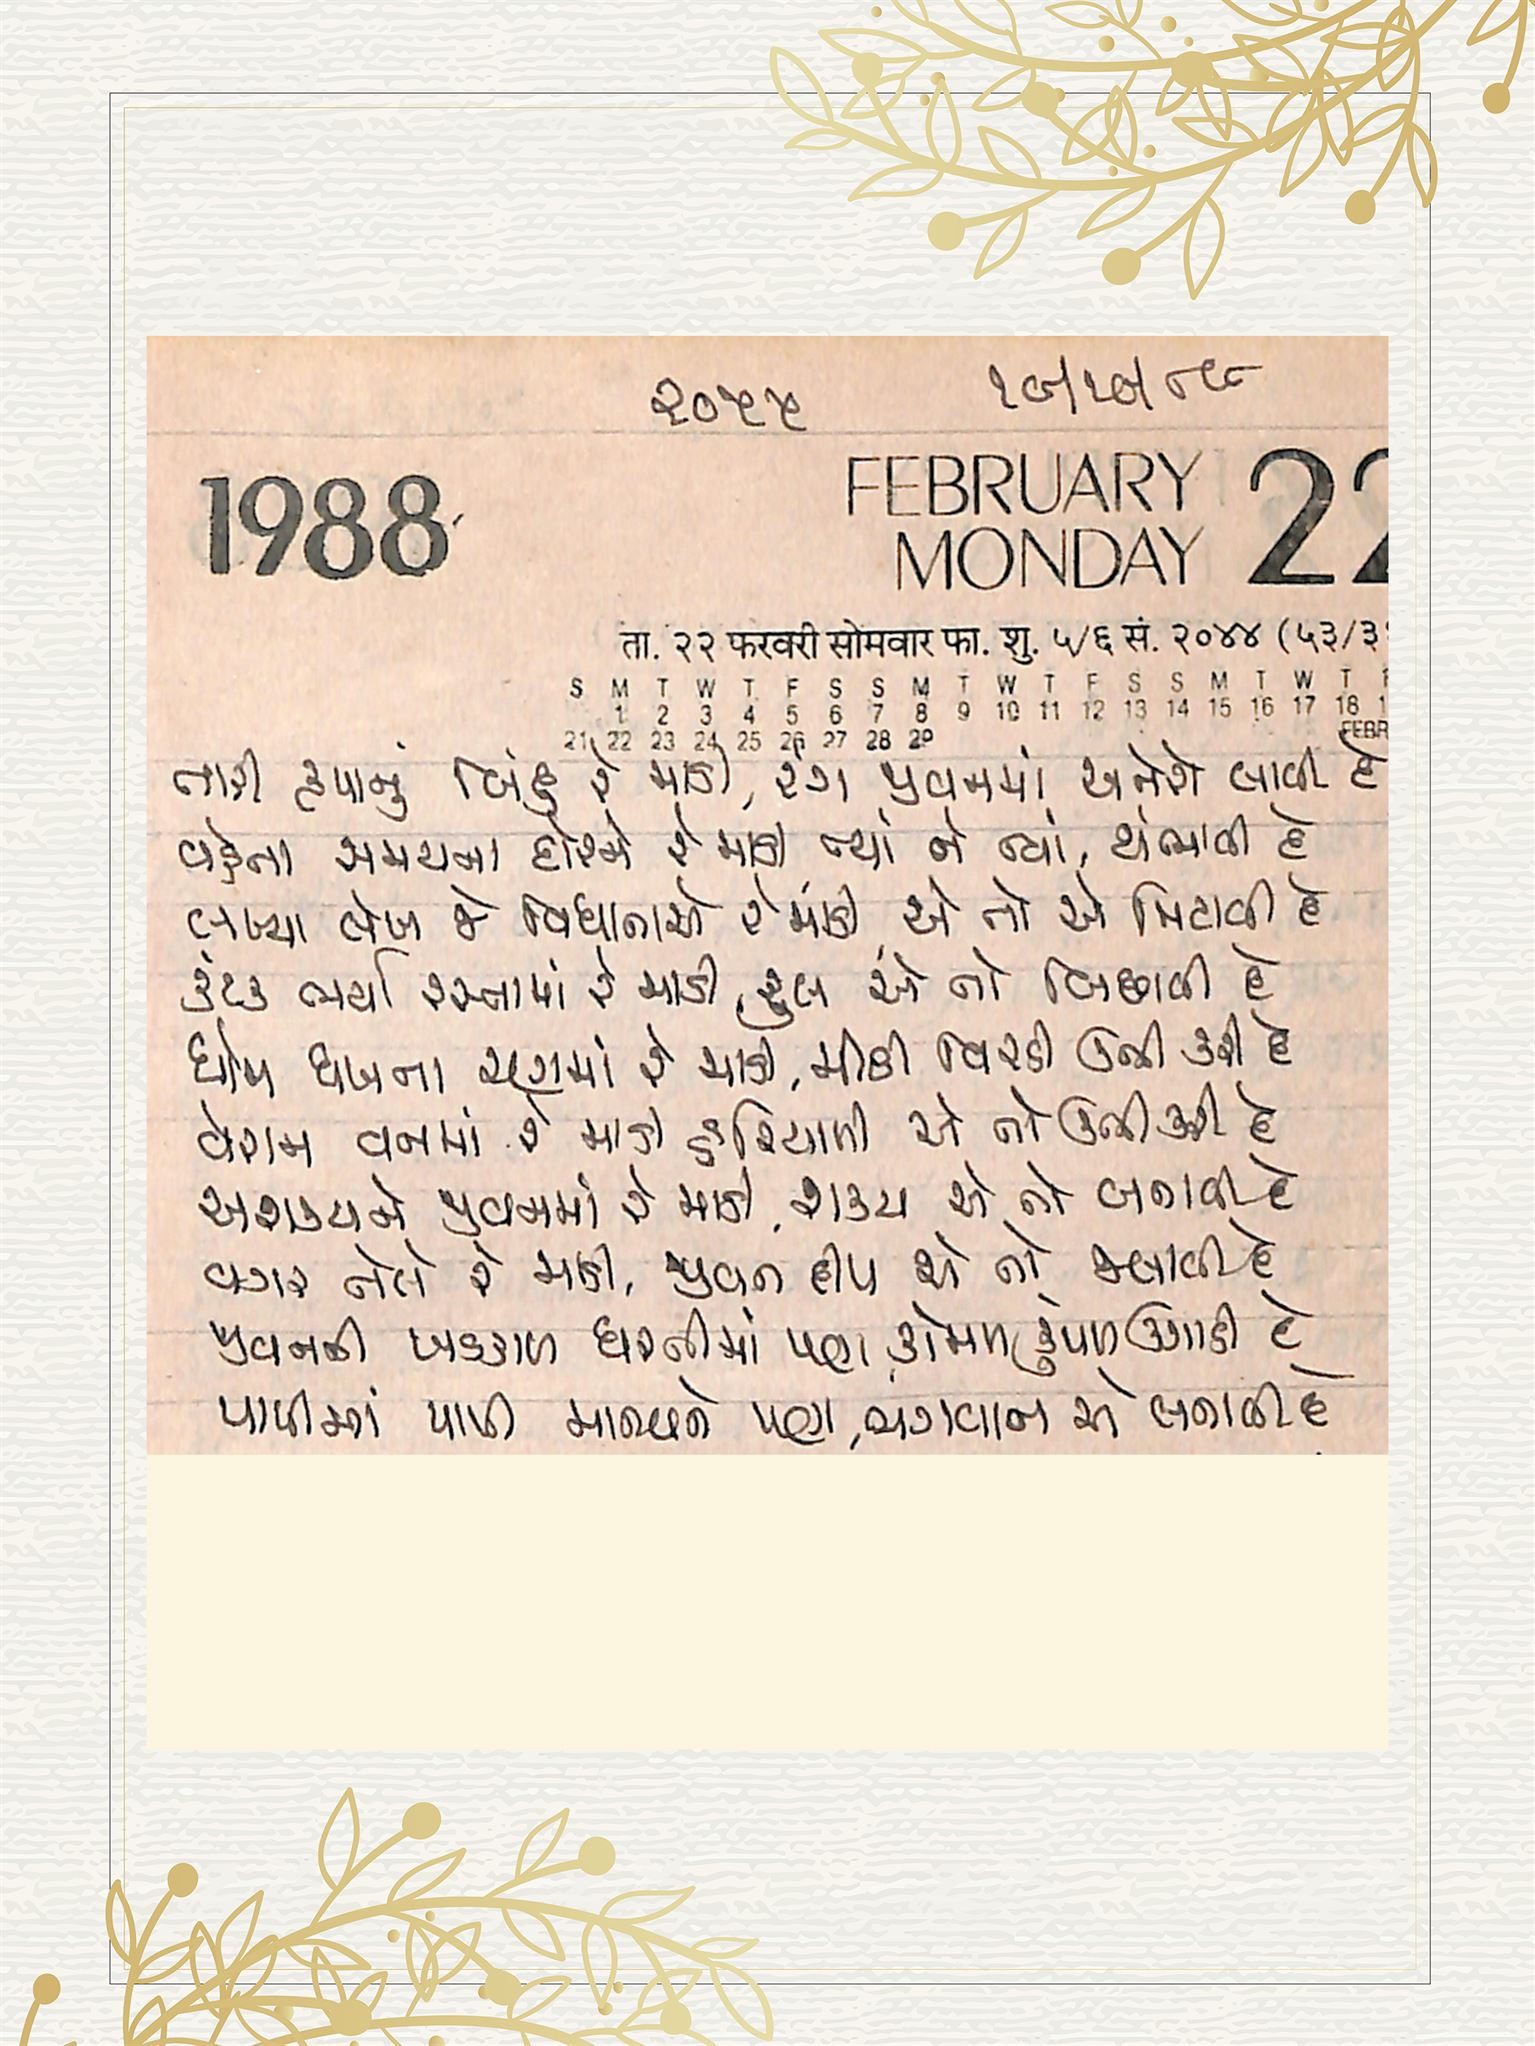 ૨૦૫૫ ૧૭/૧૦/૮૯
1988 FEBRUARY 22
MONDAY
ता. २२ फरवरी सोमवार फा. शु. ५/६ सं. २०४४ (५३/३
S M T W T F S S M T W T F S S M T W T
1 2 3 4 5 6 7 8 9 10 11 12 13 14 15 16 17 18 1
21 22 23 24 25 26 27 28 29 FEBR
તારી કૃપાનું બિંદુ રે માડી, રંગ જીવનમાં અનેરો લાવી દે
વહેતા સમયના દોરને રે માડી ત્યાં ને ત્યાં, થંભાવી દે
લખ્યા લેખ જે વિધાતાએ રે માડી, એ તો એ મિટાવી દે
કંટક ભર્યા રસ્તામાં રે માડી, ફુલ એ તો બિછાવી દે
ધોમ ધખતા રણમાં રે માડી, મીઠી વિરડી ઊભી કરી દે
વેરાન વનમાં રે માડી હરિયાળી એ તો ઊભી કરી દે
અશક્યને જીવનમાં રે માડી, શક્ય એ તો બનાવી દે
વગર તેલે રે માડી, જીવન દીપ એ તો જલાવી દે
જીવનની ખડકાળ ધરતીમાં પણ, કોમળ કુંપળ ઊગાડી દે
પાપીમાં પાપી માનવને પણ, ભગવાન એ બનાવી દે